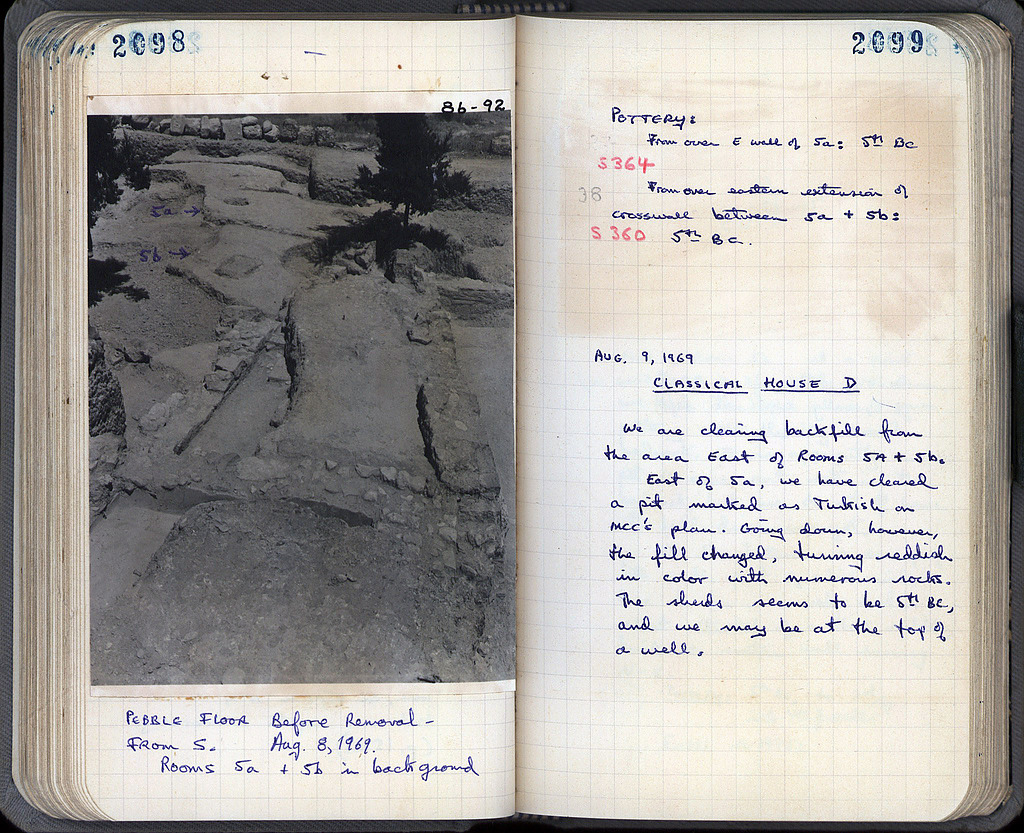 2098
86-92
5a →
5b →
PEBBLE FLOOR Before Removal -
FROM S. Aug. 8, 1969.
Rooms 5a + 5b in background
2099
POTTERY:
From over E wall of 5a: 5th BC
S364
38 From over eastern extension of
crosswall between 5a + 5b:
S 360 5th BC.
AUG. 9, 1969
CLASSICAL HOUSE D
We are clearing backfill from
the area East of Rooms 5A + 5b.
East of 5a, we have cleared
a pit marked as Turkish on
MCC's plan. Going down, however,
the fill changed, turning reddish
in color with numerous rocks.
The sherds seems to be 5th BC,
and we may be at the top of
a well.